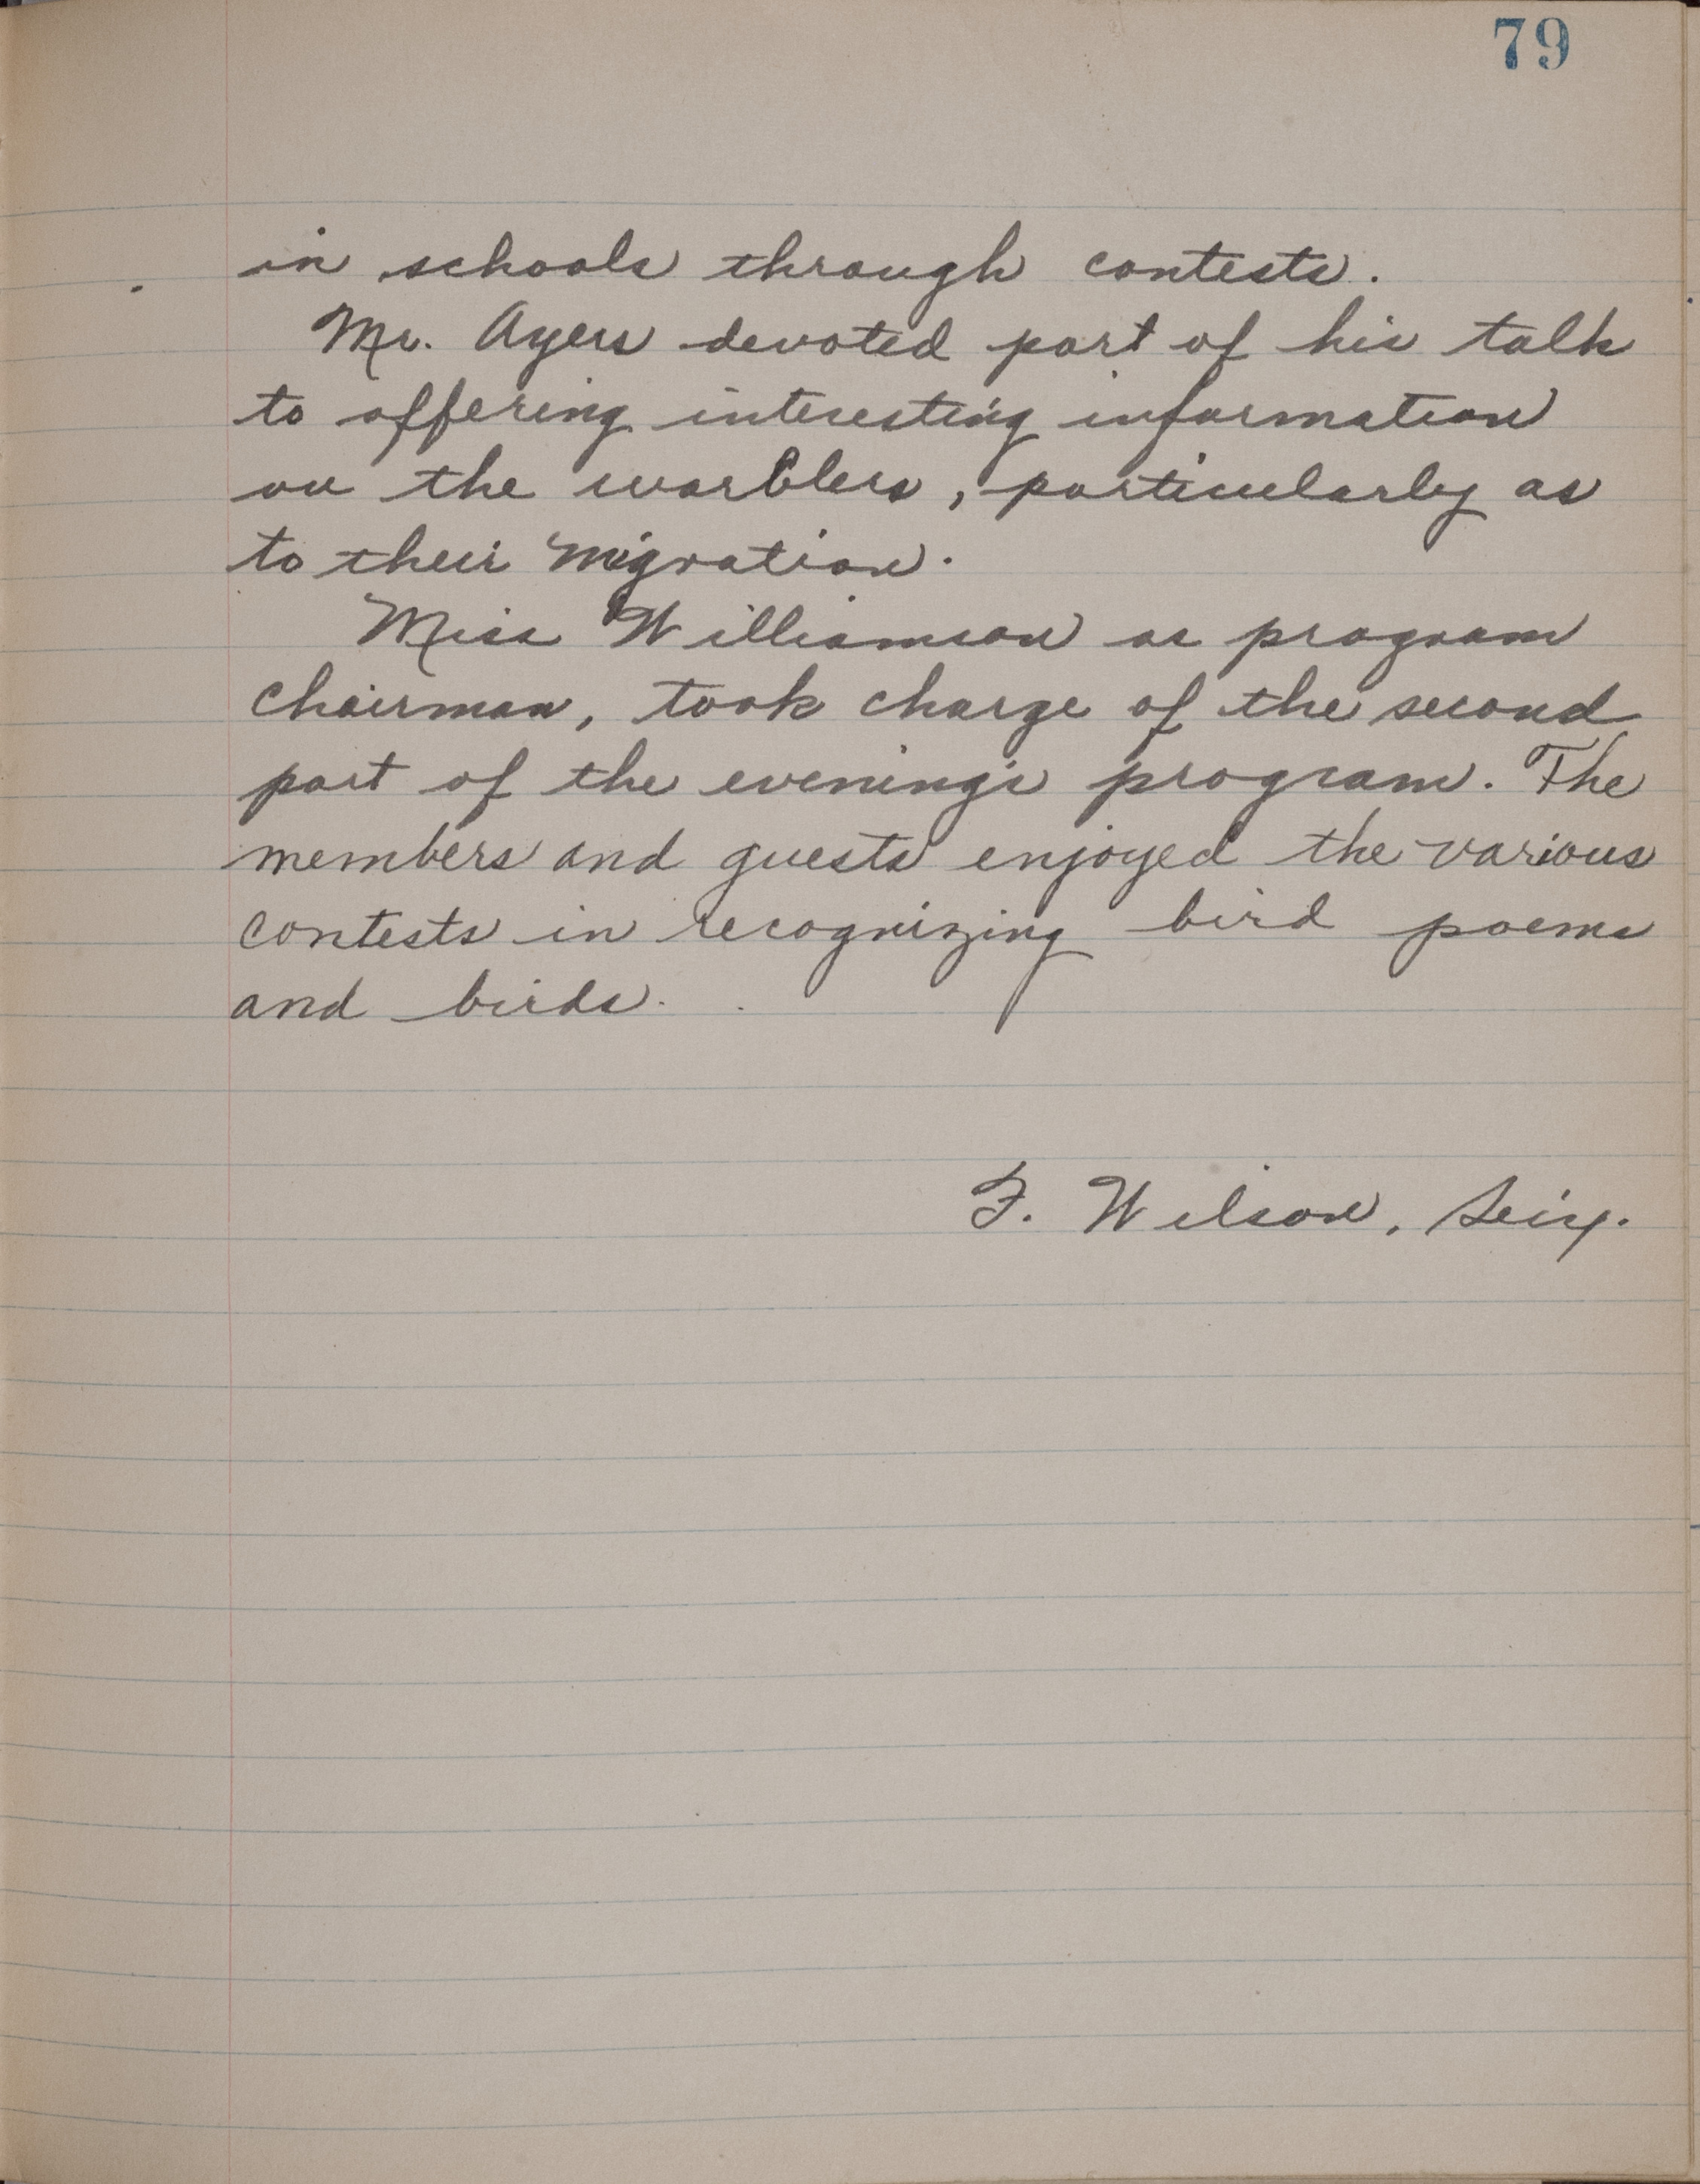 79
in schools through contests.
Mr. Ayers devoted part of his talk
to offering interesting information
on the warblers, particularly as
to their migration.
Miss Williamson as program
chairman, took charge of the second
part of the evening's program. The
members and guests enjoyed the various
contests in recognizing bird poems
and birds.
F. Wilson, Sec'y.